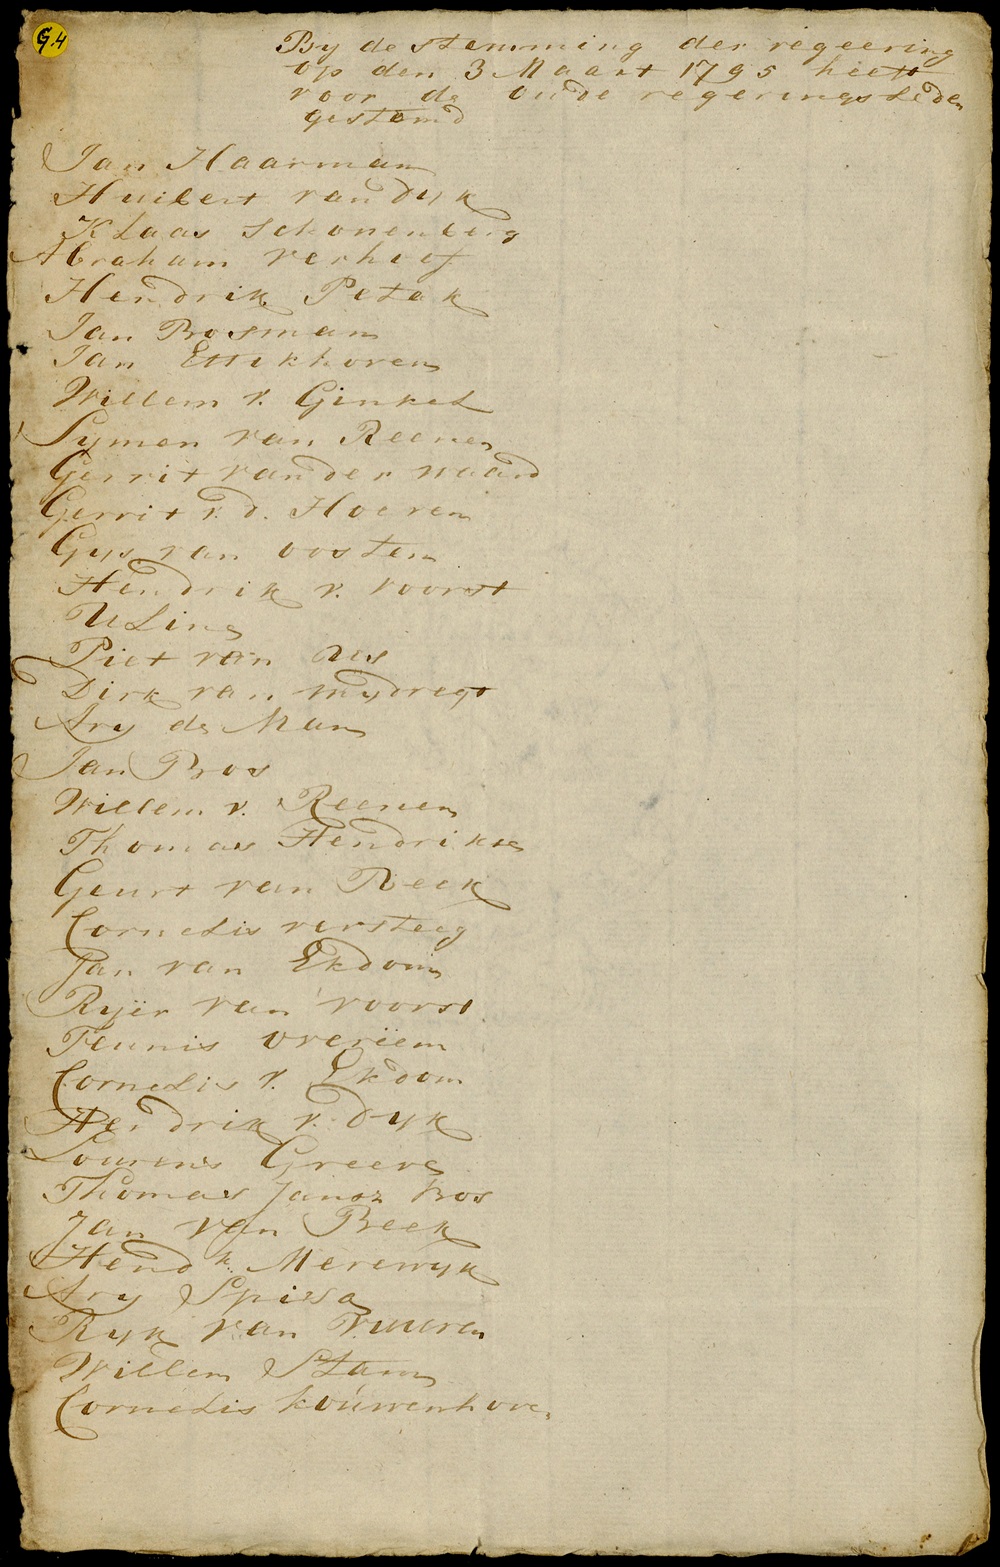 G.4
By de stemming der regeering
op den 3 Maart 1795 heeft
voor de oude regerings Leden
gestemd
Jan Haarman
Huibert van dyk
Klaas Schonenberg
Abraham verhoef
Hendrik Petak
Jan Bosman
Jan Ettikhoven
Willem v. Ginkel
Symen van Reenen
Gerrit van der waard
Gerrit v. d. Hoeven
Gys van oosten
Hendrik v. voorst
Piet van
Dirk van mydregt
Ary de Man
Jan Bos
Willem v. Reenen
Thomas Hendrikse
Geurt van Beek
Cornelis versteeg
Jan van Ekdom
Ryër van voorst
Teunis overëem
Cornelis v. Ekdom
Hendrik v. Dyk
Lourens Greeve
Thomas Jansz bos
Jan van Beek
Hendk. Merewyk
Ary Spissa
Ryk van Vuuren
Willem Stam
Cornelis kouwenhoven